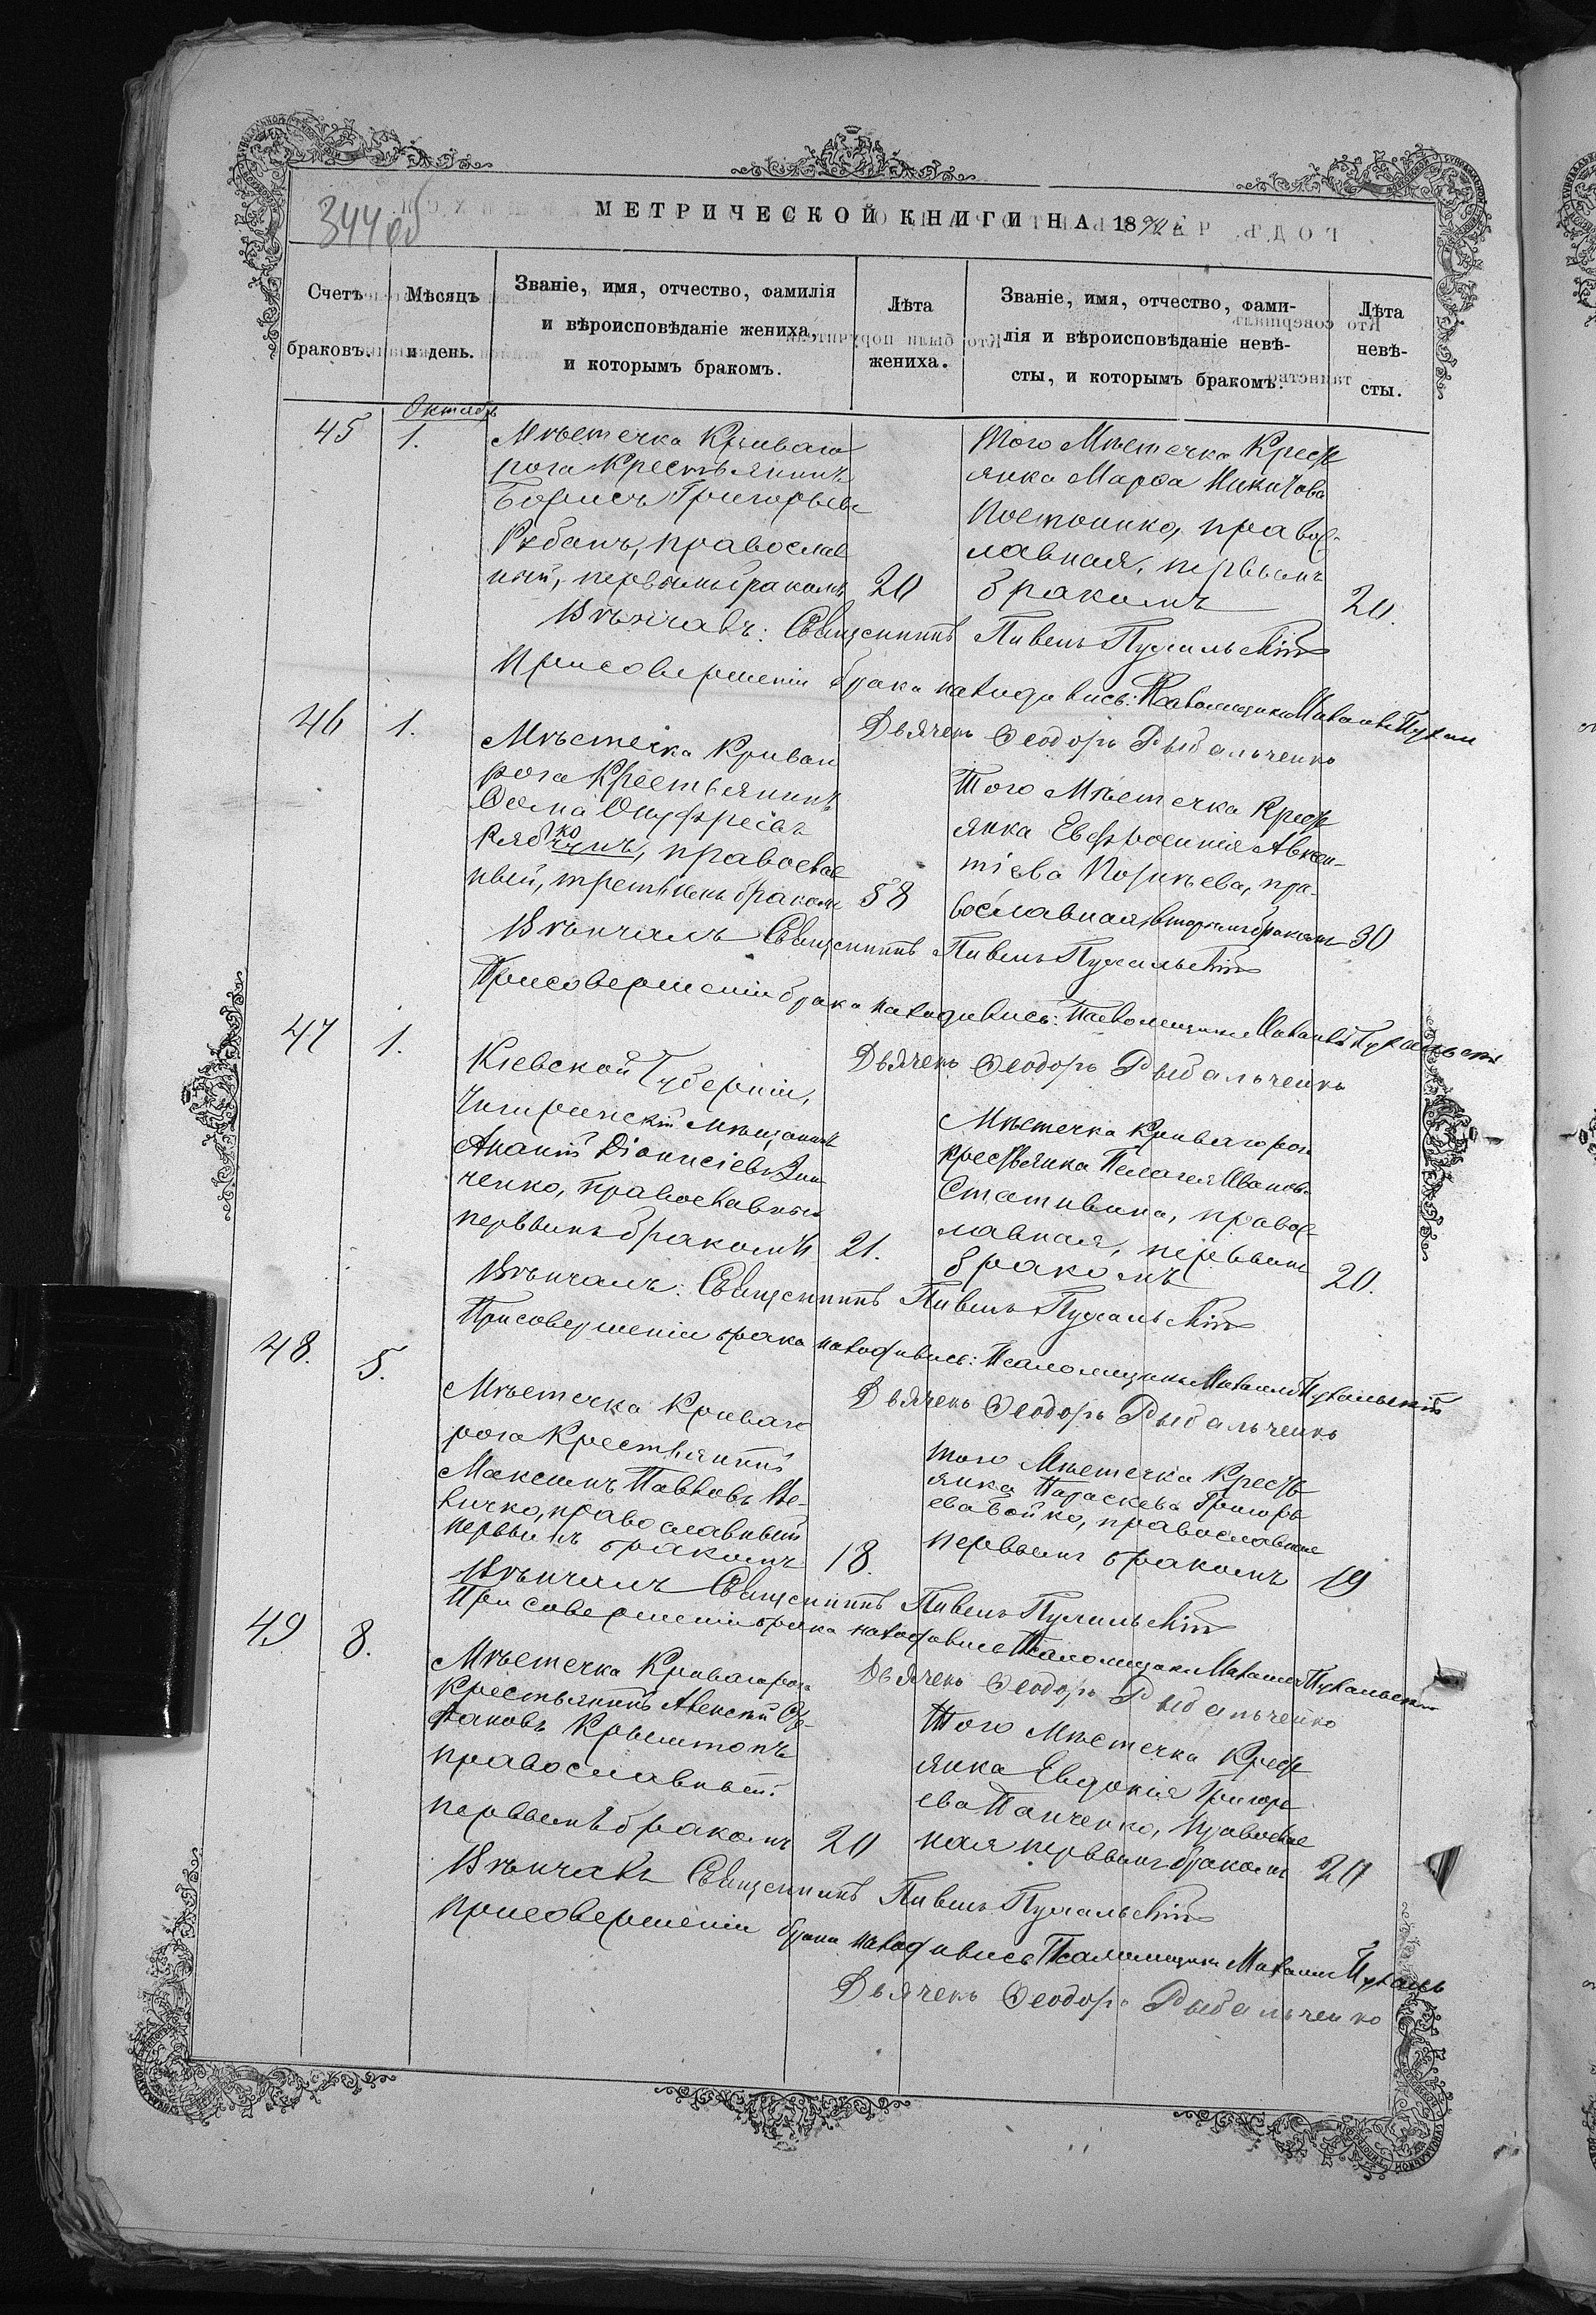 344 об
МЕТРИЧЕСКОЙ КНИГИ НА 18
Счетъ браковъ.
Мѣсяцъ и день.
Званіе, имя, отчество, фамилія
и вѣроисповѣданіе жениха,
и которымъ бракомъ.
Лѣта
жениха.
Званіе, имя, отчество, фами-
лія и вѣроисповѣданіе невѣ-
сты, и которымъ бракомъ.
Лѣта
невѣ-
сты.
Октябрь
45
1.
Мѣстечка Криваго
рога Крестьянинъ
Борисъ Григорьевъ
православ
ный, первымъ бракомъ
20
Того Мѣстечка Кресть
янка Марѳа
правос-
лавная, первымъ
бракомъ
20.
Вѣнчалъ: Священникъ
При совершеніи брака находились: Псаломщикъ Михаилъ
Дьячекъ Ѳеодоръ Рыбальченко
46
1.
Мѣстечка Криваго
рога Крестьянинъ
Онуфріевъ
православ
ный, третьимъ бракомъ
58
Того Мѣстечка Кресть
янка Евфросинія Авксен-
тіева пра-
вославная, вторымъ бракомъ
30
Вѣнчалъ Священникъ
При совершеніи брака находились: Псаломщикъ Михаилъ
Дьячекъ Ѳеодоръ Рыбальченко
47
1.
Кіевской Губерніи,
Чигиринскій мѣщанинъ
Ананій Діонисіевъ Зин
ченко, православный
первымъ бракомъ
21.
Мѣстечка Криваго рога
крестьянка Пелагея Иванова
православ-
лавная, первымъ
бракомъ
20.
Вѣнчалъ: Священникъ
При совершеніи брака находились: Псаломщикъ Михаилъ
Дьячекъ Ѳеодоръ Рыбальченко
48.
5.
Мѣстечка Криваго
рога Крестьянинъ
Максимъ Павловъ Ве-
личко, православный
первымъ бракомъ
18.
Того Мѣстечка Кресть
янка Параскева Григорь
ева Бойко, православная
первымъ бракомъ
19
Вѣнчалъ Священникъ
При совершеніи брака находились Псаломщикъ Михаилъ
Дьячекъ Ѳеодоръ Рыбальченко
49
8.
Мѣстечка Криваго рога
Крестьянинъ Алексій
православный
первымъ бракомъ
20
Того Мѣстечка Кресть
янка Евдокія Григорь
ева Панченко, православ
ная первымъ бракомъ
20
Вѣнчалъ Священникъ
При совершеніи брака находились Псаломщикъ Михаилъ
Дьячекъ Ѳеодоръ Рыбальченко